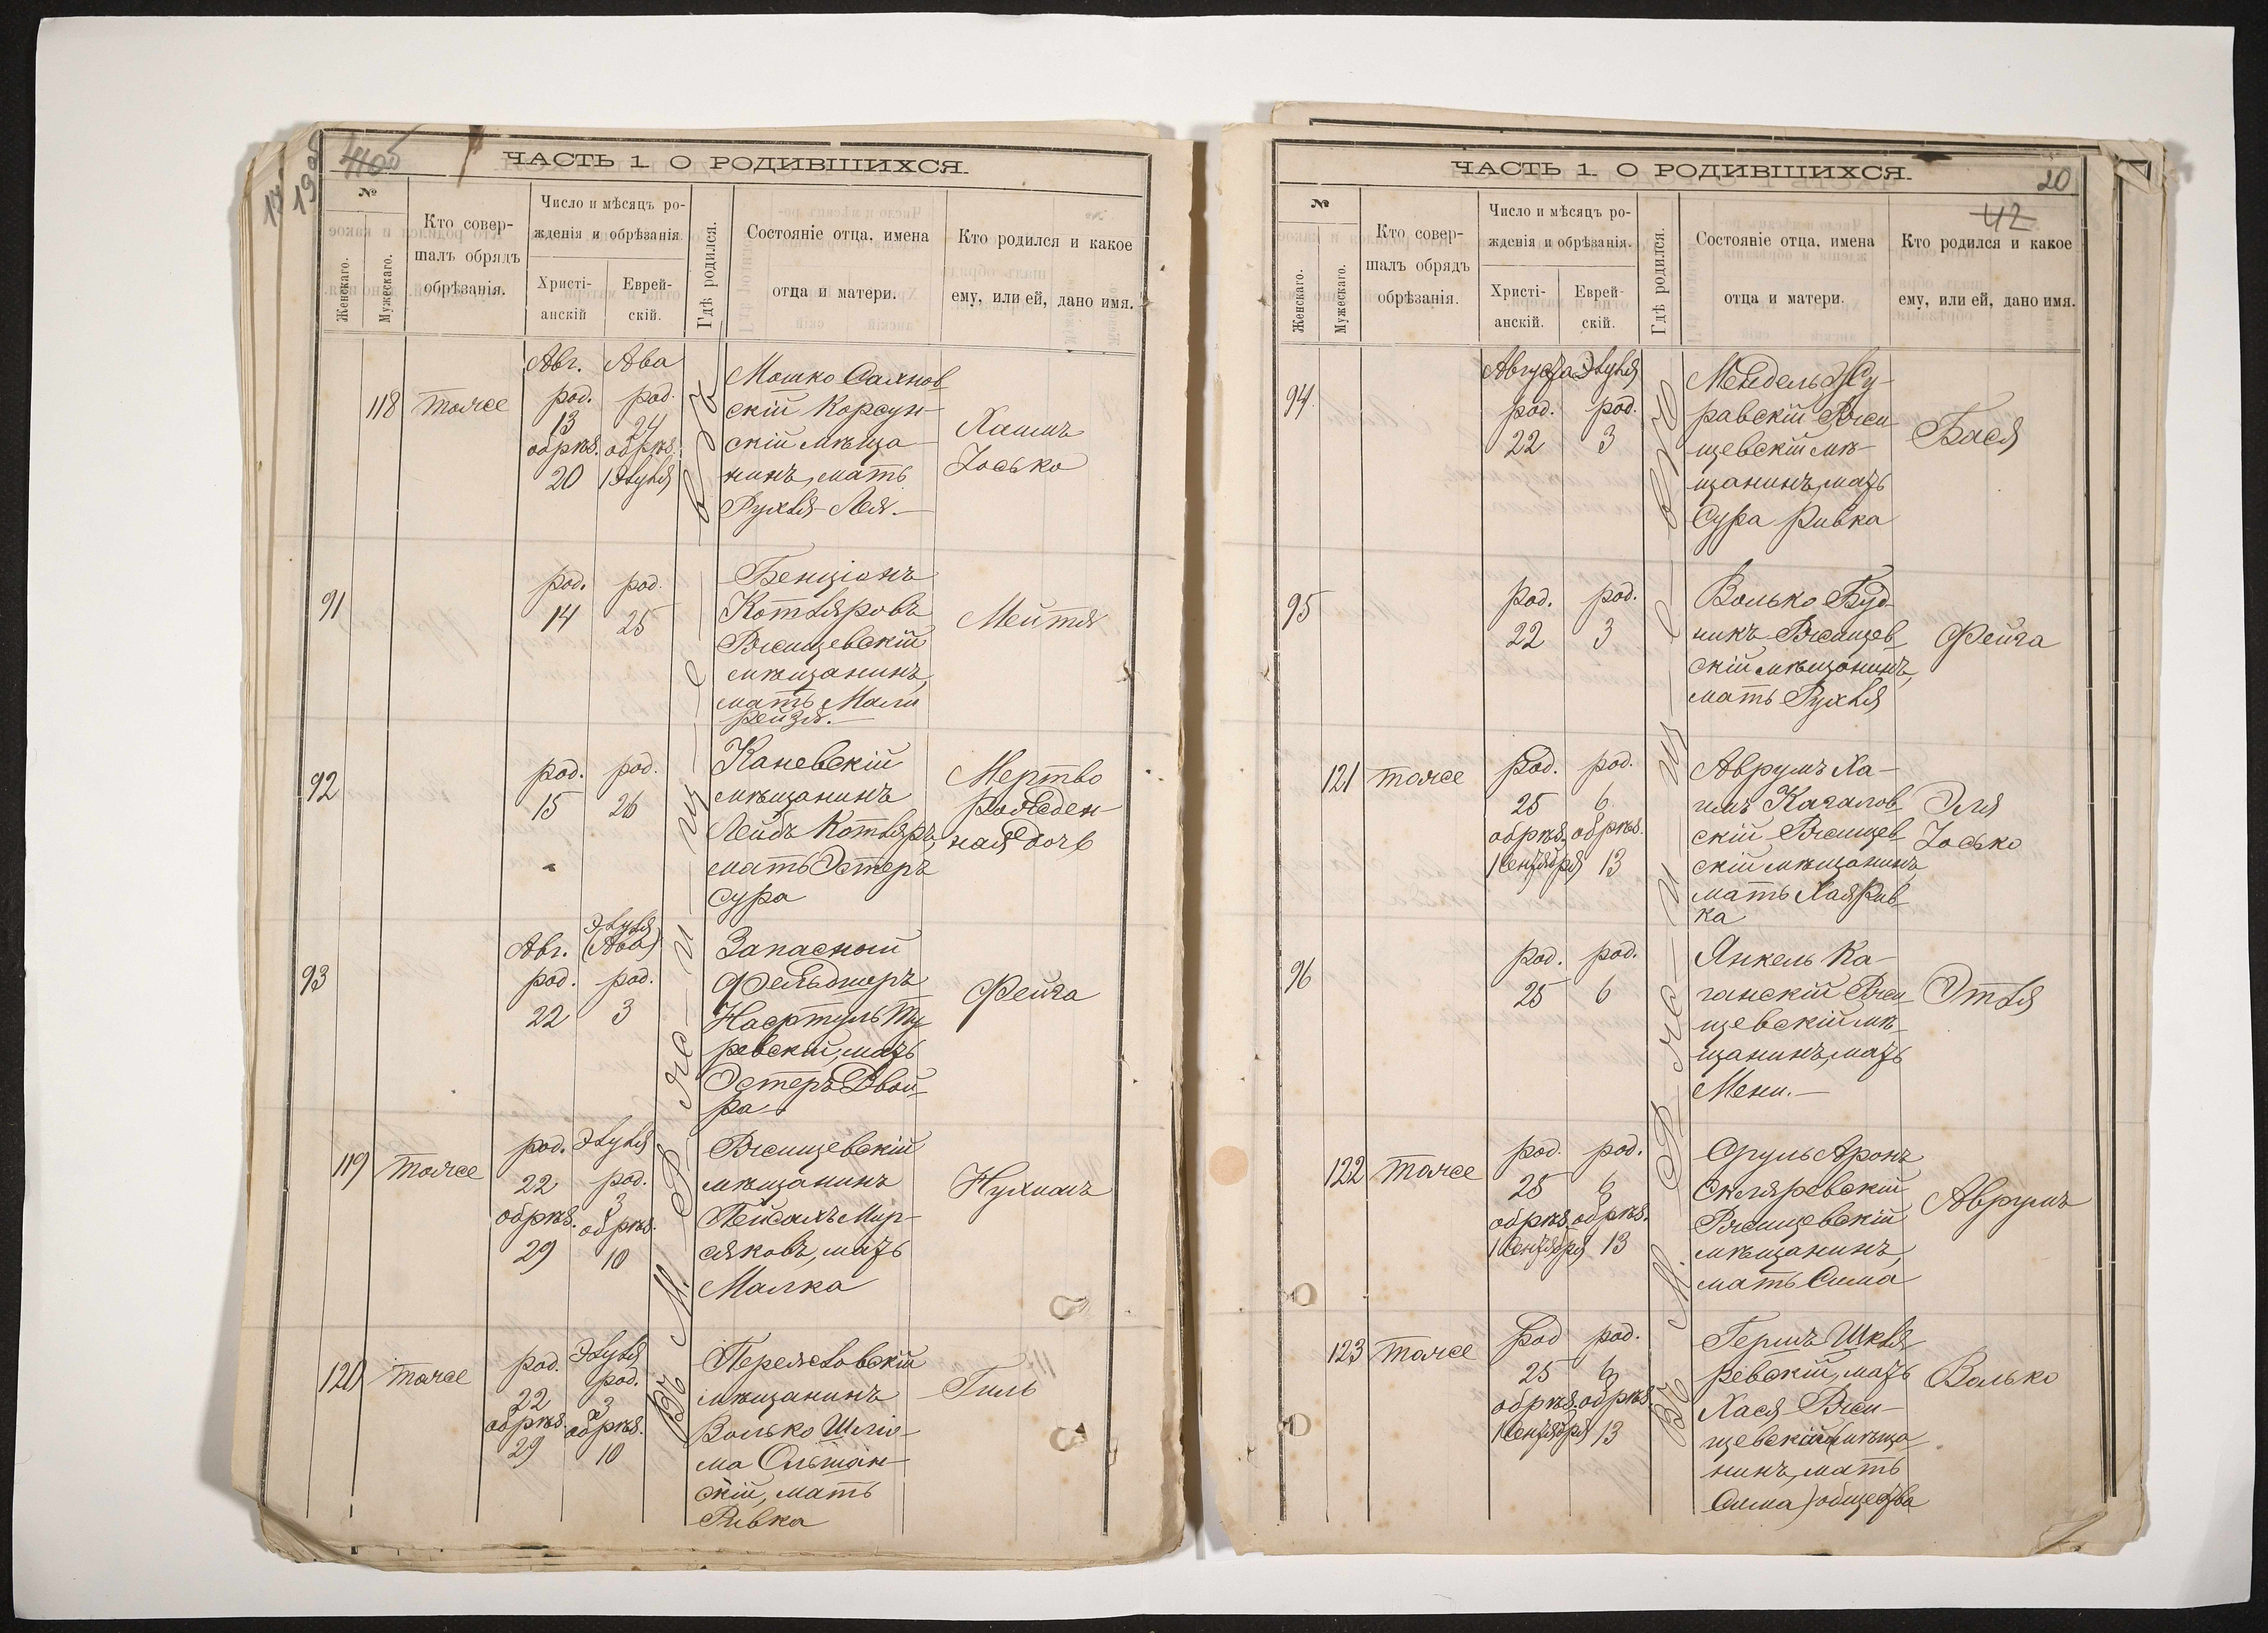 19 об
ЧАСТЬ 1 О РОДИВШИХСЯ.
№
Женскаго.
Мужескаго.
Кто совер-
шалъ обрядъ
обрѣзанія.
Число и мѣсяцъ ро-
жденія и обрѣзанія.
Христі-
анскій
Еврей-
скій.
Гдѣ родился.
Состояніе отца, имена
отца и матери.
Кто родился и какое
ему, или ей, дано имя.
Въ м. Ржищевѣ
118
тоже
Авг.
род.
13
обрѣз.
20
Ава
род.
24
обрѣз.
1 Элуля
Мошко
скій Корсун-
скій мѣща
нинъ, мать
Рухля Лея.—
Хаимъ
Іосько
91
род.
14
род.
25
Бенціонъ
Котляровъ
Ржищевскій
мѣщанинъ,
мать Мали
рейзя.—
Мейтя
92
род.
15
род.
26
Каневскій
мѣщанинъ
Лейбъ Котляръ,
мать Эстеръ
Сура
Мертво
рожден-
ная дочь
93
Авг.
род.
22
Элуля
(Ава)
род.
3
Запасный
фельдшеръ
ревскій, мать
Эстеръ Двой-
ра
Фейга
119
тоже
род.
22
обрѣз.
29
Элуля
род.
3
обрѣз.
10
Ржищевскій
мѣщанинъ
Пейсахъ Мир-
сяковъ, мать
Малка
Нухимъ
120
тоже
род.
22
обрѣз.
29
Элуля
род.
3
обрѣз.
10
Переяславскій
мѣщанинъ
Волько Шлio-
ма Ольшан-
скій, мать
Ривка
Гиль
ЧАСТЬ 1. О РОДИВШИХСЯ.
20
42
№
Женскаго.
Мужескаго.
Кто совер-
шалъ обрядъ
обрѣзанія.
Число и мѣсяцъ ро-
жденія и обрѣзанія.
Христі-
анскій.
Еврей-
скій.
Гдѣ родился.
Состояніе отца, имена
отца и матери.
Кто родился и какое
ему, или ей, дано имя.
Въ м. Ржищевѣ
94
Августа
род.
22
Элуля
род.
3
Мендель Жу-
равскій Ржи
щевскій мѣ-
щанинъ, мать
Сура Ривка
Бася
95
род.
22
род.
3
Волько Буд-
никъ Ржищев
скій мѣщанинъ,
мать Рухля
Фейга
121
тоже
род.
25
обрѣз.
1 Сентября
род.
6
обрѣз.
13
Аврумъ Ха-
имъ Кагалов
скій Ржищев
скій мѣщанинъ
мать Хая Рив-
ка
Эля
Іосько
96
род.
25
род.
6
Янкель Ка-
ганскій Ржи
щевскій мѣ-
щанинъ, мать
Мени.—
Этля
122
тоже
род.
25
обрѣз.
1 Сентября
род.
6
обрѣз.
13
Сруль Аронъ
Скляревскій
Ржищевскій
мѣщанинъ,
мать Сима
Аврумъ
123
тоже
род
25
обрѣз.
1 Сентября
род.
6
обрѣз.
13
Гершъ Шкля
ревскій, мать
Хася Ржи-
щевскій (мѣща
нинъ, мать
Сима) общества
Волько